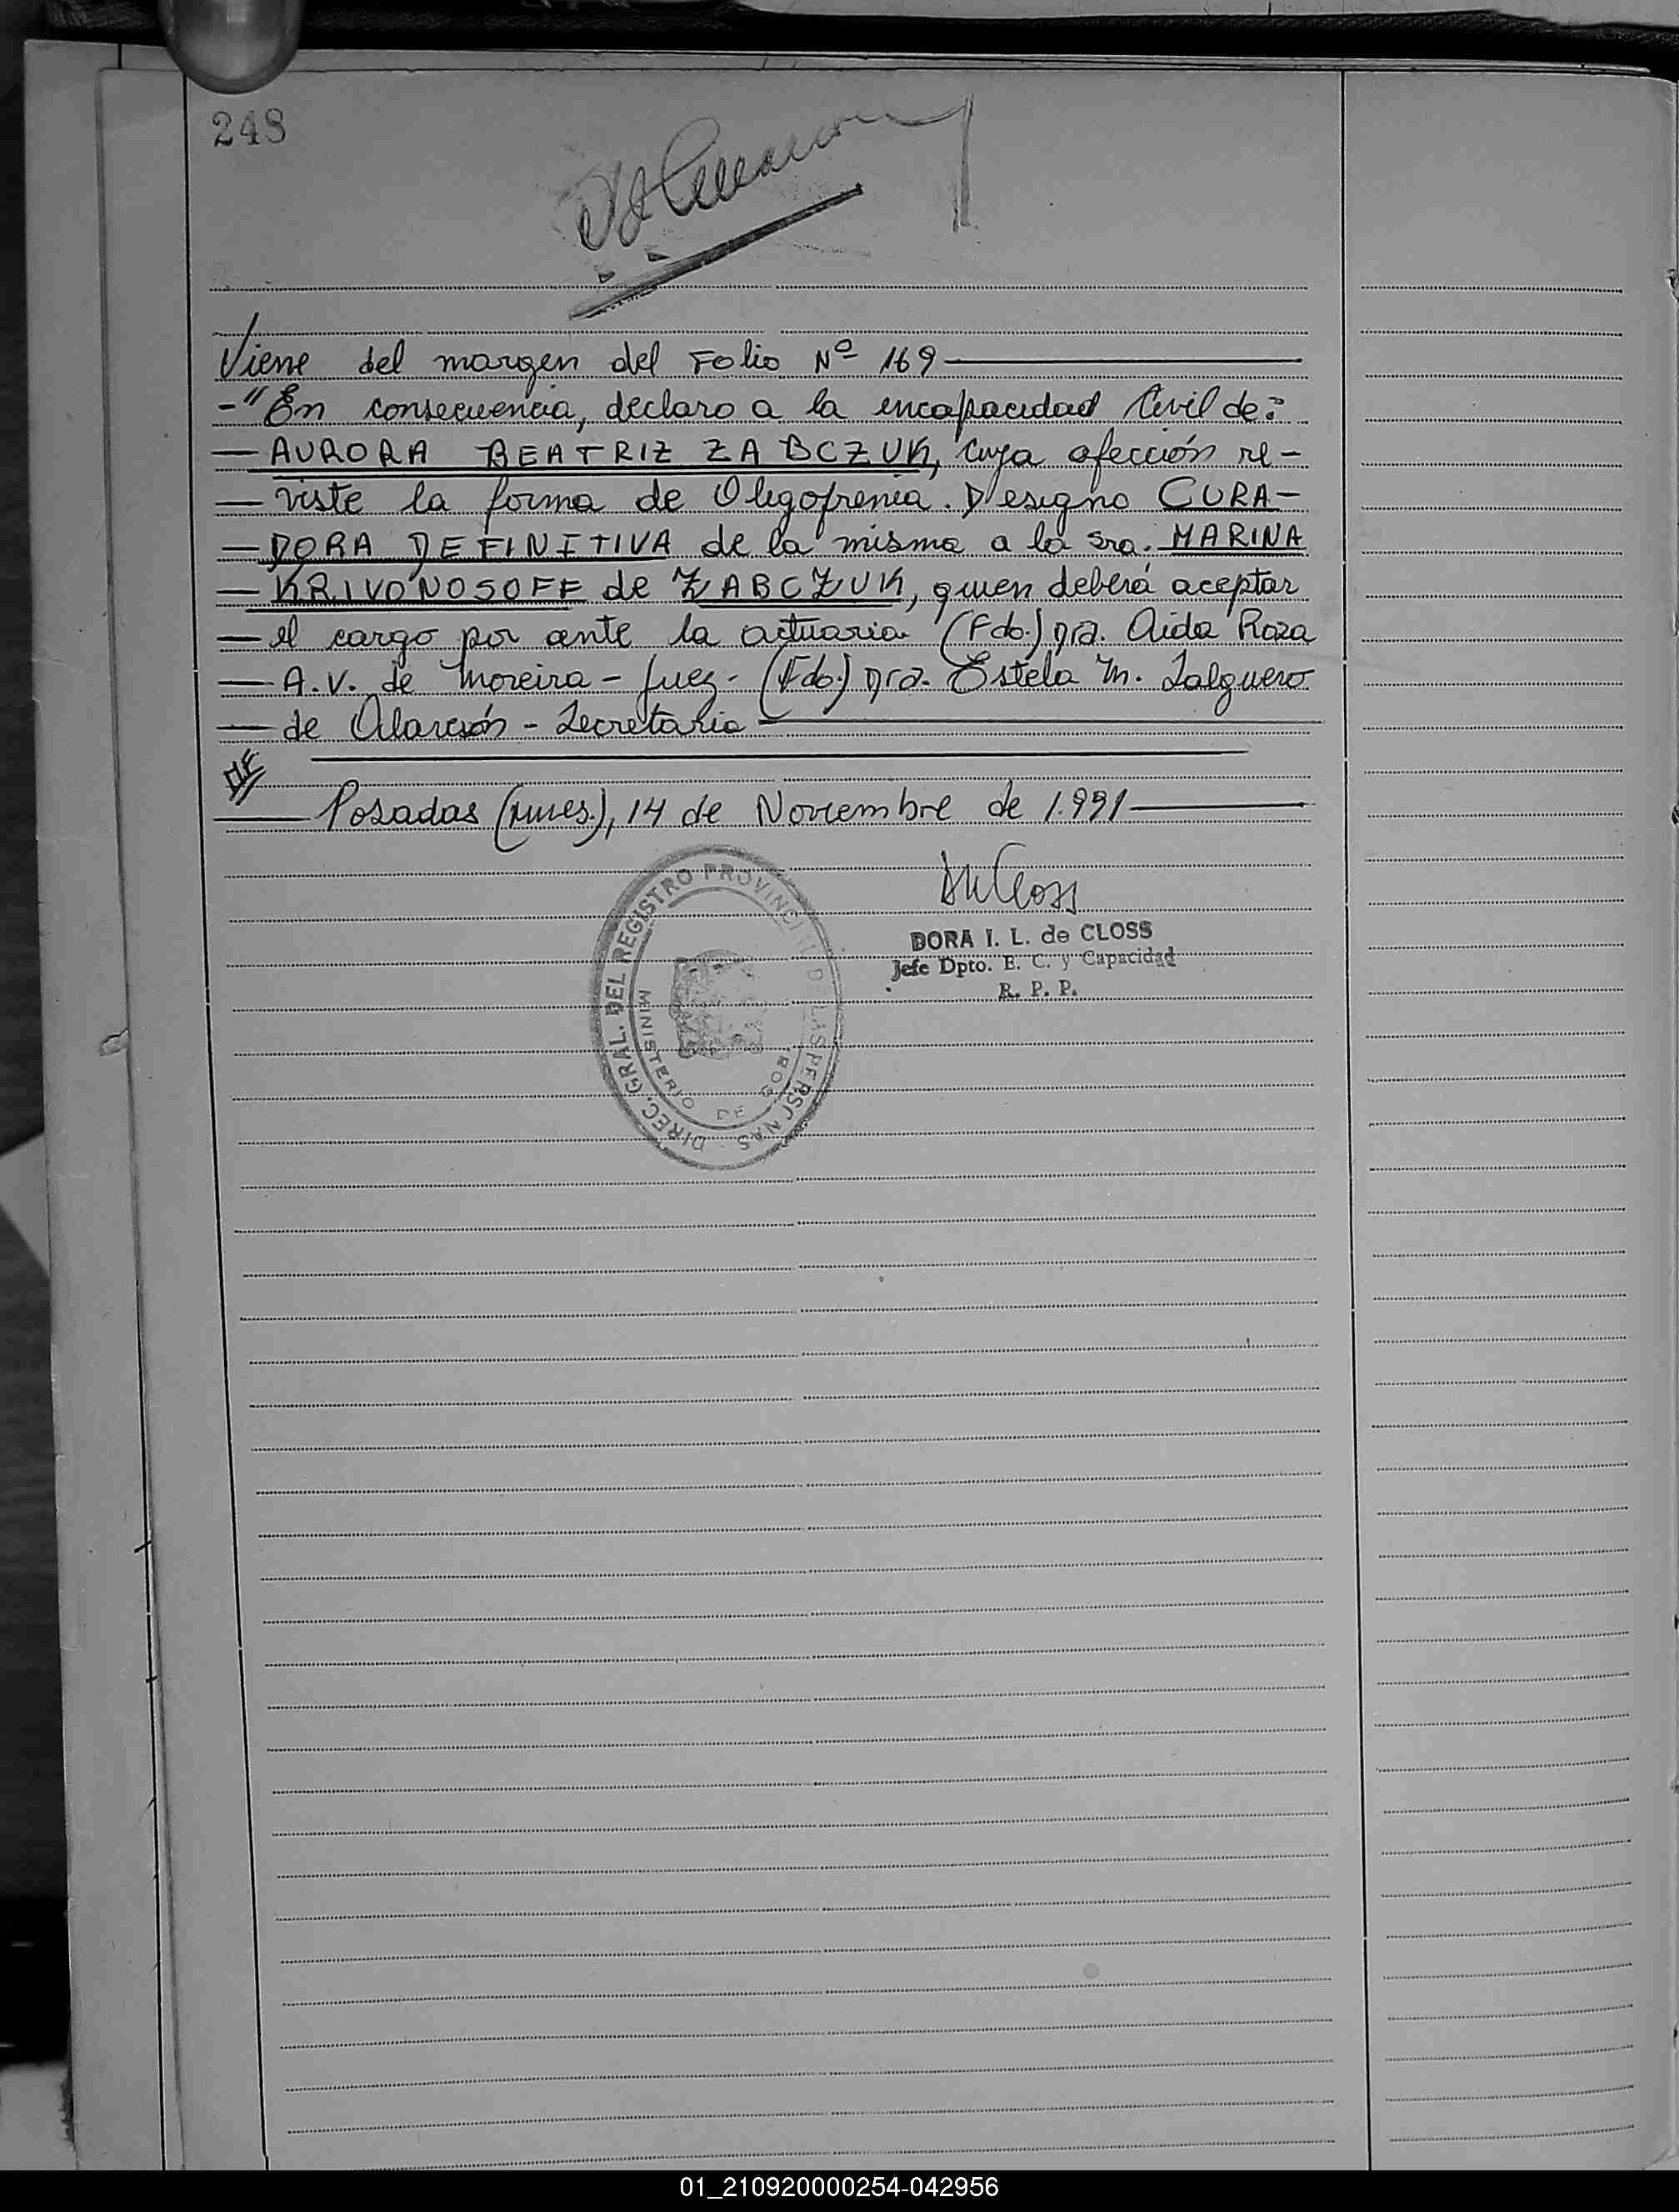 248
Viene del margen del Folio Nº 169
-"En consecuencia, declaro a la incapacidad Civil de:
— AURORA BEATRIZ ZABCZUK, cuya afección re-
— viste la forma de Oligofrenia. Designo CURA-
— DORA DEFINITIVA de la misma a la sra. MARINA
— KRIVONOSOFF de ZABCZUK, quien deberá aceptar
— el cargo por ante la actuaria" (Fdo.) Dra. Aida Rosa
— A.V. de Moreira - Juez - (Fdo) Dra. Estela M. Salguero
— de Alarcón - Secretaria
DE
Posadas (Mnes.), 14 de Noviembre de 1.991
DORA I. L. de CLOSS
Jefe Dpto. E. C. y Capacidad
R. P. P.
DIREC. GRAL. DEL REGISTRO PROVINCIAL DE LAS PERSONAS
MINISTERIO DE GOB
01_210920000254-042956